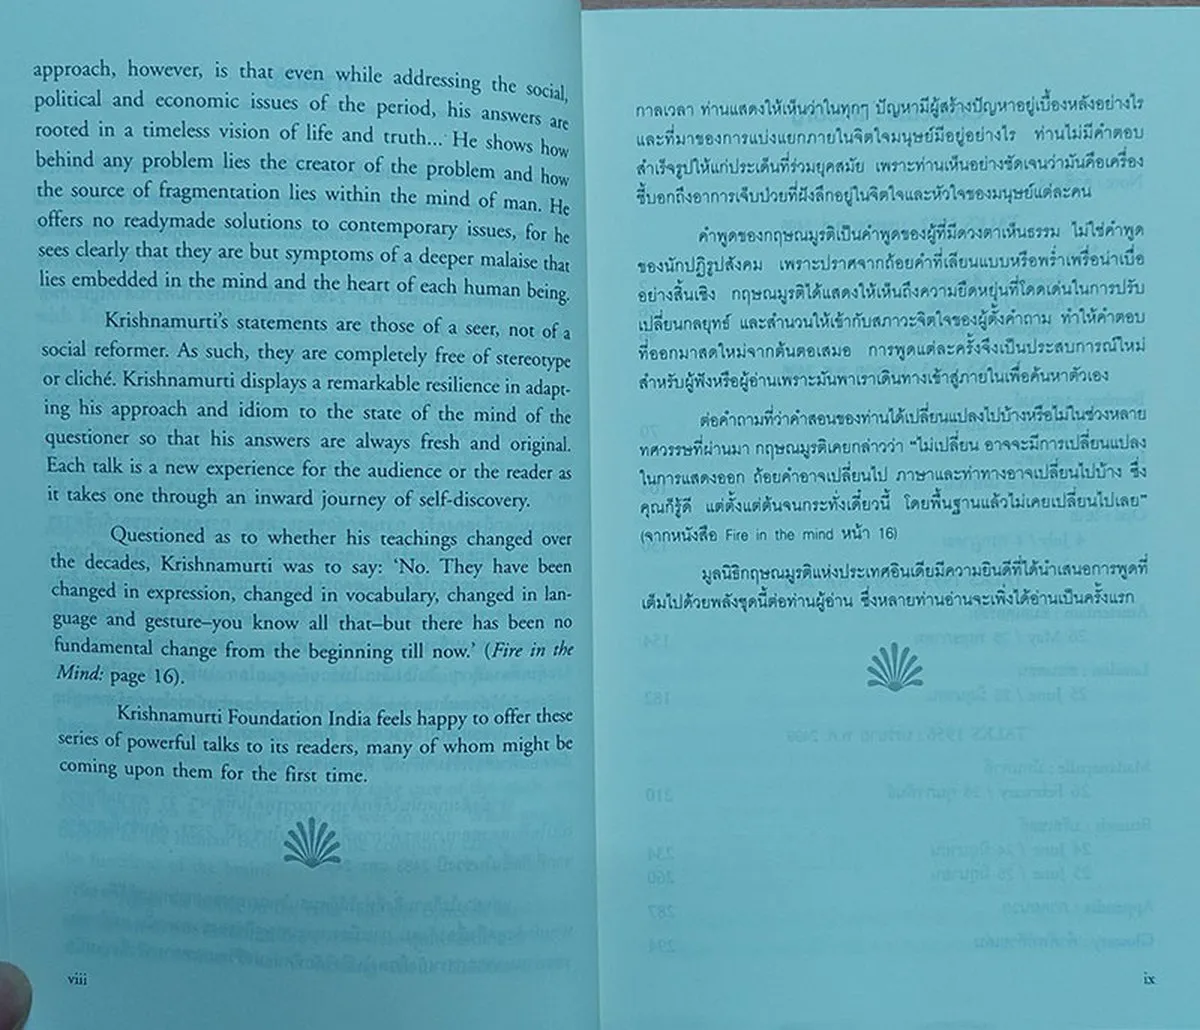 approach, however, is that even while addressing the social,
political and economic issues of the period, his answers are
rooted in a timeless vision of life and truth... He shows how
behind any problem lies the creator of the problem and how
the source of fragmentation lies within the mind of man. He
offers no readymade solutions to contemporary issues, for he
sees clearly that they are but symptoms of a deeper malaise that
lies embedded in the mind and the heart of each human being.
Krishnamurti's statements are those of a seer, not of a
social reformer. As such, they are completely free of stereotype
or cliché. Krishnamurti displays a remarkable resilience in adapt-
ing his approach and idiom to the state of the mind of the
questioner so that his answers are always fresh and original.
Each talk is a new experience for the audience or the reader as
it takes one through an inward journey of self-discovery.
Questioned as to whether his teachings changed over
the decades, Krishnamurti was to say: 'No. They have been
changed in expression, changed in vocabulary, changed in lan-
guage and gesture–you know all that–but there has been no
fundamental change from the beginning till now.' (Fire in the
Mind: page 16).
Krishnamurti Foundation India feels happy to offer these
series of powerful talks to its readers, many of whom might be
coming upon them for the first time.
viii
กาลเวลา ท่านแสดงให้เห็นว่าในทุกๆ ปัญหามีผู้สร้างปัญหาอยู่เบื้องหลังอย่างไร
และที่มาของการแบ่งแยกภายในจิตใจมนุษย์มีอยู่อย่างไร ท่านไม่มีคำตอบ
สำเร็จรูปให้แก่ประเด็นที่ร่วมยุคสมัย เพราะท่านเห็นอย่างชัดเจนว่ามันคือเครื่อง
ชี้บอกถึงอาการเจ็บป่วยที่ฝังลึกอยู่ในจิตใจและหัวใจของมนุษย์แต่ละคน
คำพูดของกฤษณมูรติเป็นคำพูดของผู้ที่มีดวงตาเห็นธรรม ไม่ใช่คำพูด
ของนักปฏิรูปสังคม เพราะปราศจากถ้อยคำที่เลียนแบบหรือพร่ำเพรื่อน่าเบื่อ
อย่างสิ้นเชิง กฤษณมูรติได้แสดงให้เห็นถึงความยืดหยุ่นที่โดดเด่นในการปรับ
เปลี่ยนกลยุทธ์ และสำนวนให้เข้ากับสภาวะจิตใจของผู้ตั้งคำถาม ทำให้คำตอบ
ที่ออกมาสดใหม่จากต้นตอเสมอ การพูดแต่ละครั้งจึงเป็นประสบการณ์ใหม่
สำหรับผู้ฟังหรือผู้อ่านเพราะมันพาเราเดินทางเข้าสู่ภายในเพื่อค้นหาตัวเอง
ต่อคำถามที่ว่าคำสอนของท่านได้เปลี่ยนแปลงไปบ้างหรือไม่ในช่วงหลาย
ทศวรรษที่ผ่านมา กฤษณมูรติเคยกล่าวว่า "ไม่เปลี่ยน อาจจะมีการเปลี่ยนแปลง
ในการแสดงออก ถ้อยคำอาจเปลี่ยนไป ภาษาและท่าทางอาจเปลี่ยนไปบ้าง ซึ่ง
คุณก็รู้ดี แต่ตั้งแต่ต้นจนกระทั่งเดี๋ยวนี้ โดยพื้นฐานแล้วไม่เคยเปลี่ยนไปเลย"
(จากหนังสือ Fire in the mind หน้า 16)
มูลนิธิกฤษณมูรติแห่งประเทศอินเดียมีความยินดีที่ได้นำเสนอการพูดที่
เต็มไปด้วยพลังชุดนี้ต่อท่านผู้อ่าน ซึ่งหลายท่านอ่านจะเพิ่งได้อ่านเป็นครั้งแรก
ix